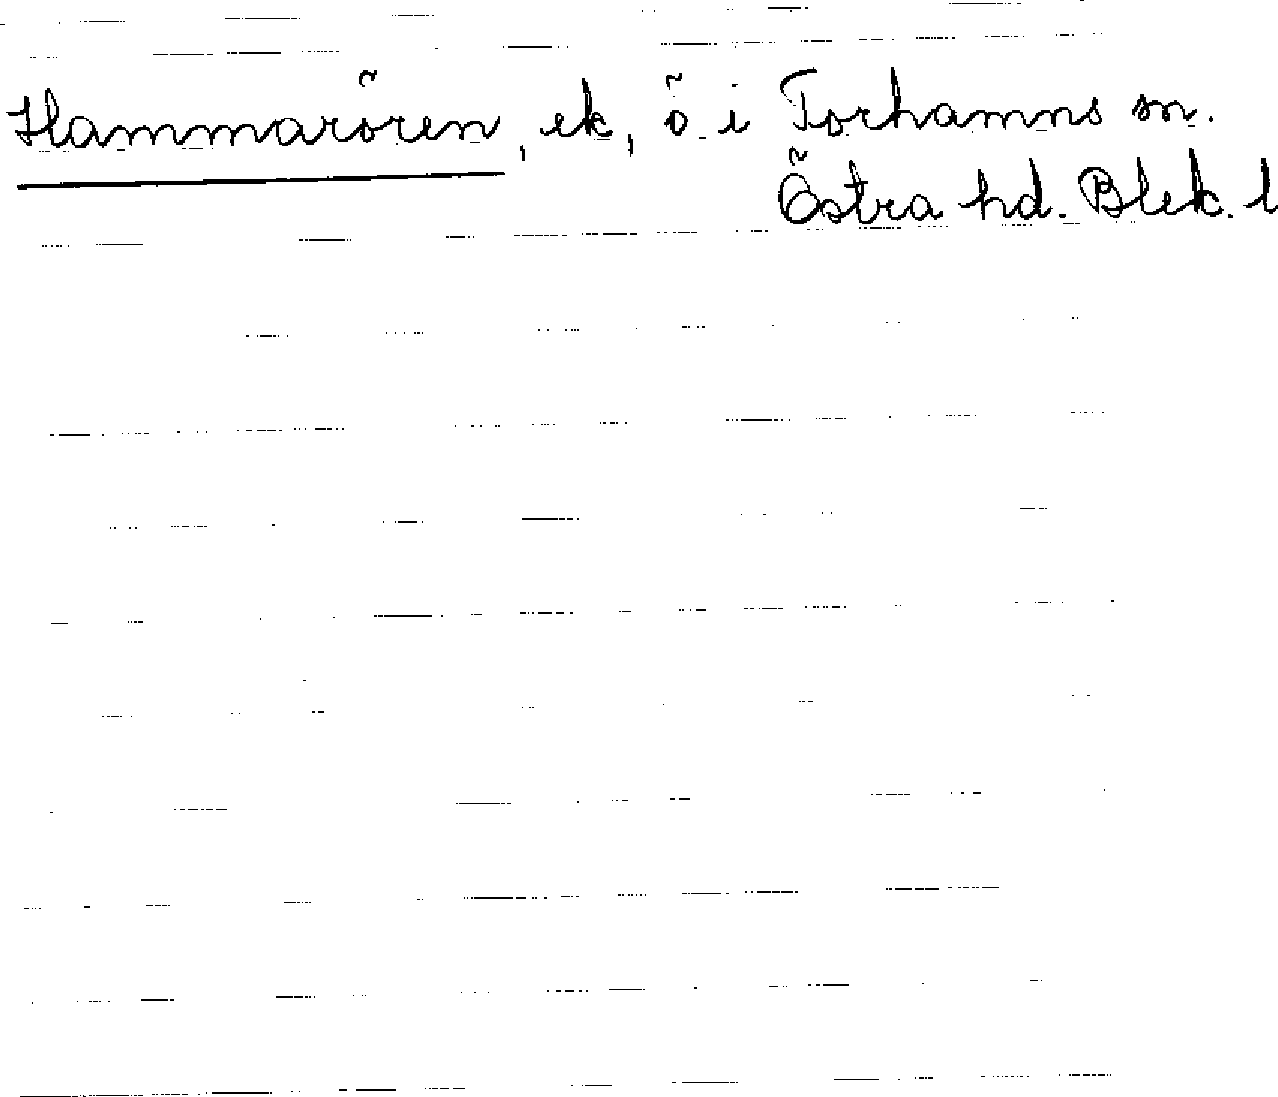 Hammarören, ek, ö i Torhamns sn.
Östra hd. Blek. l